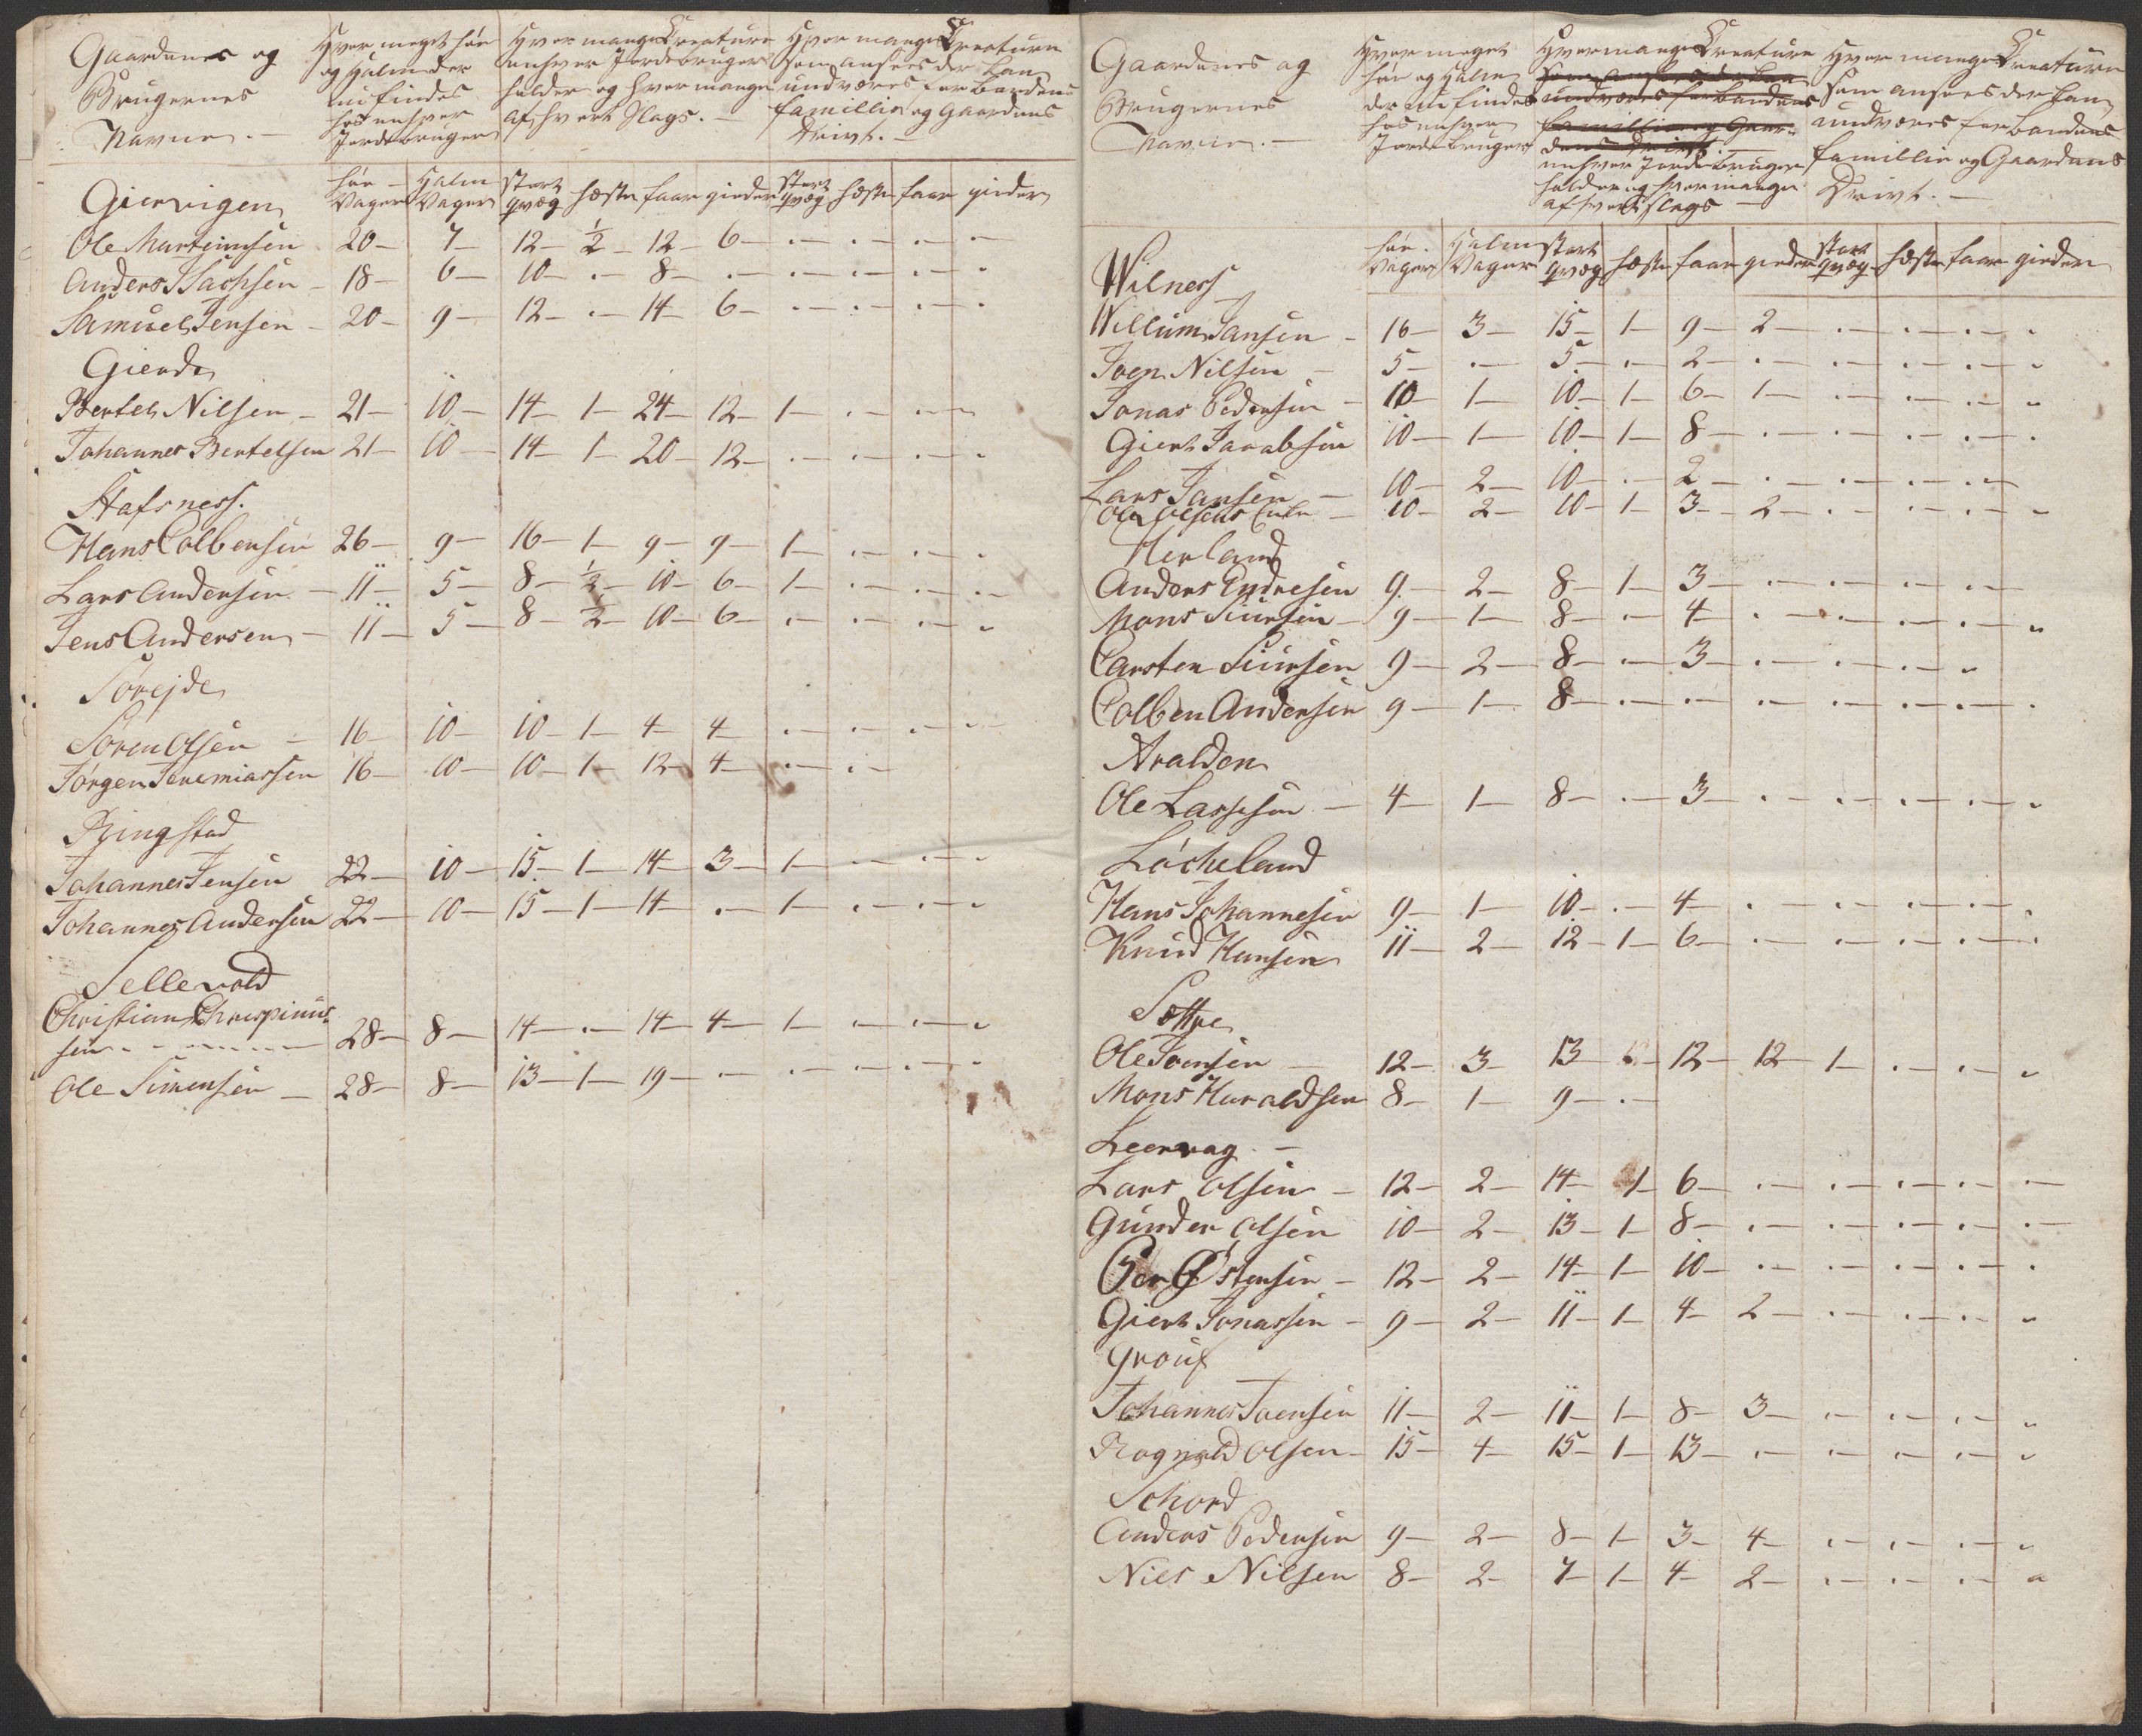 Gaardenes og
Brugernes
Navne. —
Hvor meget høe
og Halm der
nu findes
hos enhver
Jordbruger
Hvor mange Creature
enhver Jordebruger
holder og hvor mange
af hvert Slags. —
Hvor mange Creature
som ansees der kan
undværes for Bondens
familie og Gaardens
Drivt. —
høe Vager | Halm Vager | stort qvæg | hæste | faar | gieder | stort qvæg | hæste | faar | gieder
Giervigen
Ole Marteinsen 20 — 7 — 12 — ½ — 12 — 6 — . — . — . — . —
Anders Isachsen — 18 — 6 — 10 — . — 8 — . — . — . — . — .
Samuel Jensen — 20 — 9 — 12 — . — 14 — 6 — . — . — . — .
Gierde
Bertel Nilsen — 21 — 10 — 14 — 1 — 24 — 12 — 1 — . — . — . —
Johannes Bertelsen 21 — 10 — 14 — 1 — 20 — 12 — . — . — . — .
Stafsness.
Hans Colbensen 26 — 9 — 16 — 1 — 9 — 9 — 1 — . — . — .
Lars Andersen — 11 — 5 — 8 — ½ — 10 — 6 — 1 — . — . — .
Jens Andersen — 11 — 5 — 8 — ½ — 10 — 6 — . — . — . — .
Sørejde
Søren Olsen — 16 — 10 — 10 — 1 — 4 — 4 — . — . — . — . —
Jørgen Jeremiassen 16 — 10 — 10 — 1 — 12 — 4 — . — . —
Ringstad
Johannes Jensen 22 — 10 — 15 — 1 — 14 — 3 — 1 — . — . — .
Johannes Andersen 22 — 10 — 15 — 1 — 14 — . — 1 — . — . — .
Sellevold
Christian Chrispinus-
sen — 28 — 8 — 14 — . — 14 — 4 — 1 — . — . — .
Ole Simensen — 28 — 8 — 13 — 1 — 19 — . — . — . — . — .
Gaardenes og
Brugernes
Navne. —
Hvor meget
høe og Halm
der nu findes
hos enhver
Jordebruger
Hvor mange Creature
som ansees der kan
undværes for Bondens
familie og Gaar-
dens Drivt
enhver Jordebruger
holder og hvor mange
af hvert slags —
Hvor mange Creature
som ansees der kan
undværes for Bondens
familie og Gaardens
Drivt. —
høe Vager | Halm Vager | stort qvæg | hæste | faar | gieder | stort qvæg | hæste | faar | gieder
Wilness
Willum Jansen — 16 — 3 — 15 — 1 — 9 — 2 — . — . — . — .
Joen Nilsen — 5 — . — 5 — . — 2 — . — . — . — . — .
Jonas Pedersen — 10 — 1 — 10 — 1 — 6 — 1 — . — . — . — .
Giert Jacobsen 10 — 1 — 10 — 1 — 8 — . — . — . — . — .
Lars Jansen — 10 — 2 — 10 — . — 2 — . — . — . — . —
Ole Olsens Enke — 10 — 2 — 10 — 1 — 3 — 2 — . — . — . — .
Herland
Anders Endresen 9 — 2 — 8 — 1 — 3 — . — . — . — . —
Mons Siursen — 9 — 1 — 8 — . — 4 — . — . — . — . — .
Carsten Siursen 9 — 2 — 8 — . — 3 — . — . — . — .
Colben Andersen 9 — 1 — 8 — . — . — . — . — . — . — .
Aralden
Ole Lassesen — 4 — 1 — 8 — . — 3 — . — . — . — . — .
Løcheland
Hans Johannesen 9 — 1 — 10 — . — 4 — . — . — . — . — .
Knud Hansen 11 — 2 — 12 — 1 — 6 — . — . — . — . — .
Ole Joensen — 12 — 3 — 13 — 12 — 12 — 1 — . — . — .
Mons Haraldsen 8 — 1 — 9 — . —
Leervag. —
Lars Olsen — 12 — 2 — 14 — 1 — 6 — . — . — . — . — . —
Gunder Olsen 10 — 2 — 13 — 1 — 8 — . — . — . — . — . —
Per Østensen — 12 — 2 — 14 — 1 — 10 — . — . — . — . — .
Giert Jonassen — 9 — 2 — 11 — 1 — 4 — 2 — . — . — . — .
Johannes Joensen 11 — 2 — 11 — 1 — 8 — 3 — . — . — . — .
Rognald Olsen — 15 — 4 — 15 — 1 — 13 — . — . — . — . — .
Schord
Anders Pedersen 9 — 2 — 8 — 1 — 3 — 4 — . — . — . — .
Niels Nilsen 8 — 2 — 7 — 1 — 4 — 2 — . — . — . — .